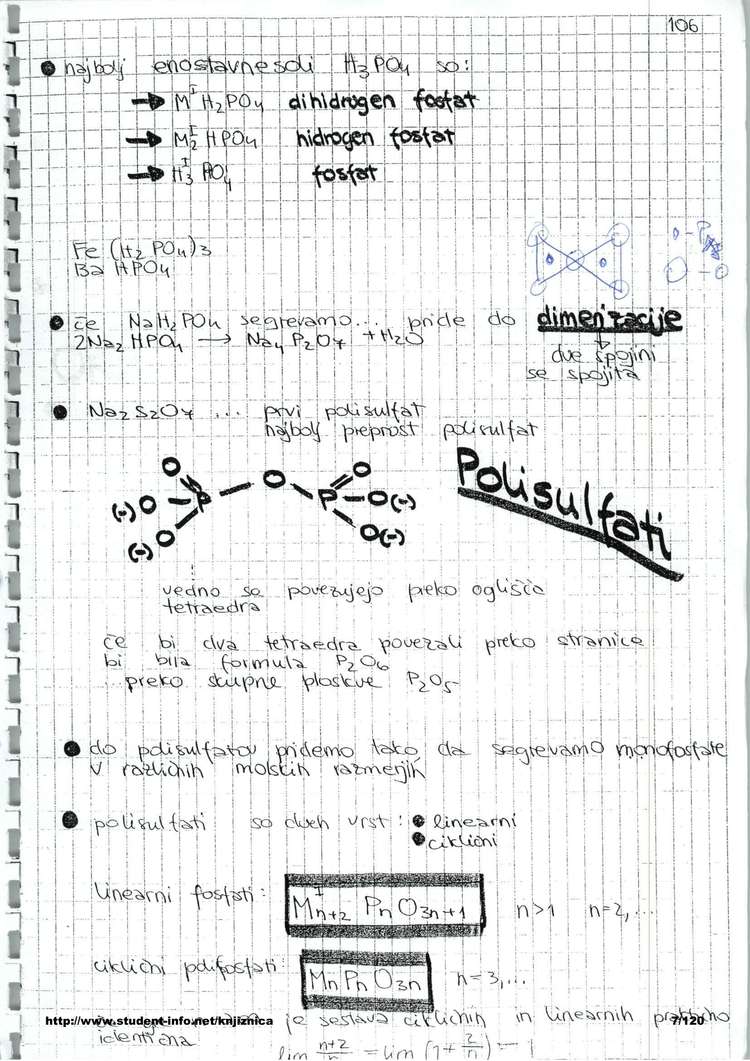 106
● najbolj enostavne soli H3PO4 so:
→ M^I H2PO4 dihidrogen fosfat
→ M2^I HPO4 hidrogen fosfat
→ H3^I PO4 fosfat
Fe (H2PO4)3
Ba HPO4
o - P
O - O
● če NaH2PO4 segrevamo... pride do dimerizacije
2Na2HPO4 → Na4P2O7 + H2O
dve spojini
se spojita
● Na2S2O7 ... prvi polisulfat
najbolj preprost polisulfat
Polisulfati
O O O
(-) O - P P - O(-)
(-) O O(-)
vedno se povezujejo preko oglišča
tetraedra
če bi dva tetraedra povezali preko stranice
bi bila formula P2O6
...preko skupne ploskve P2O5
● do polisulfatov pridemo tako, da segrevamo monofosfate
v različnih molskih razmerjih
● polisulfati so dveh vrst: ● linearni
● ciklični
linearni fosfati: M^I n+2 Pn O3n+1 n>1 n=2,...
ciklični polifosfati: Mn Pn O3n n=3,...
http://www.student-info.net/knjiznica je sestava cikličnih in linearnih praktično 7/120
identična lim n+2/n = lim (1+2/n) = 1